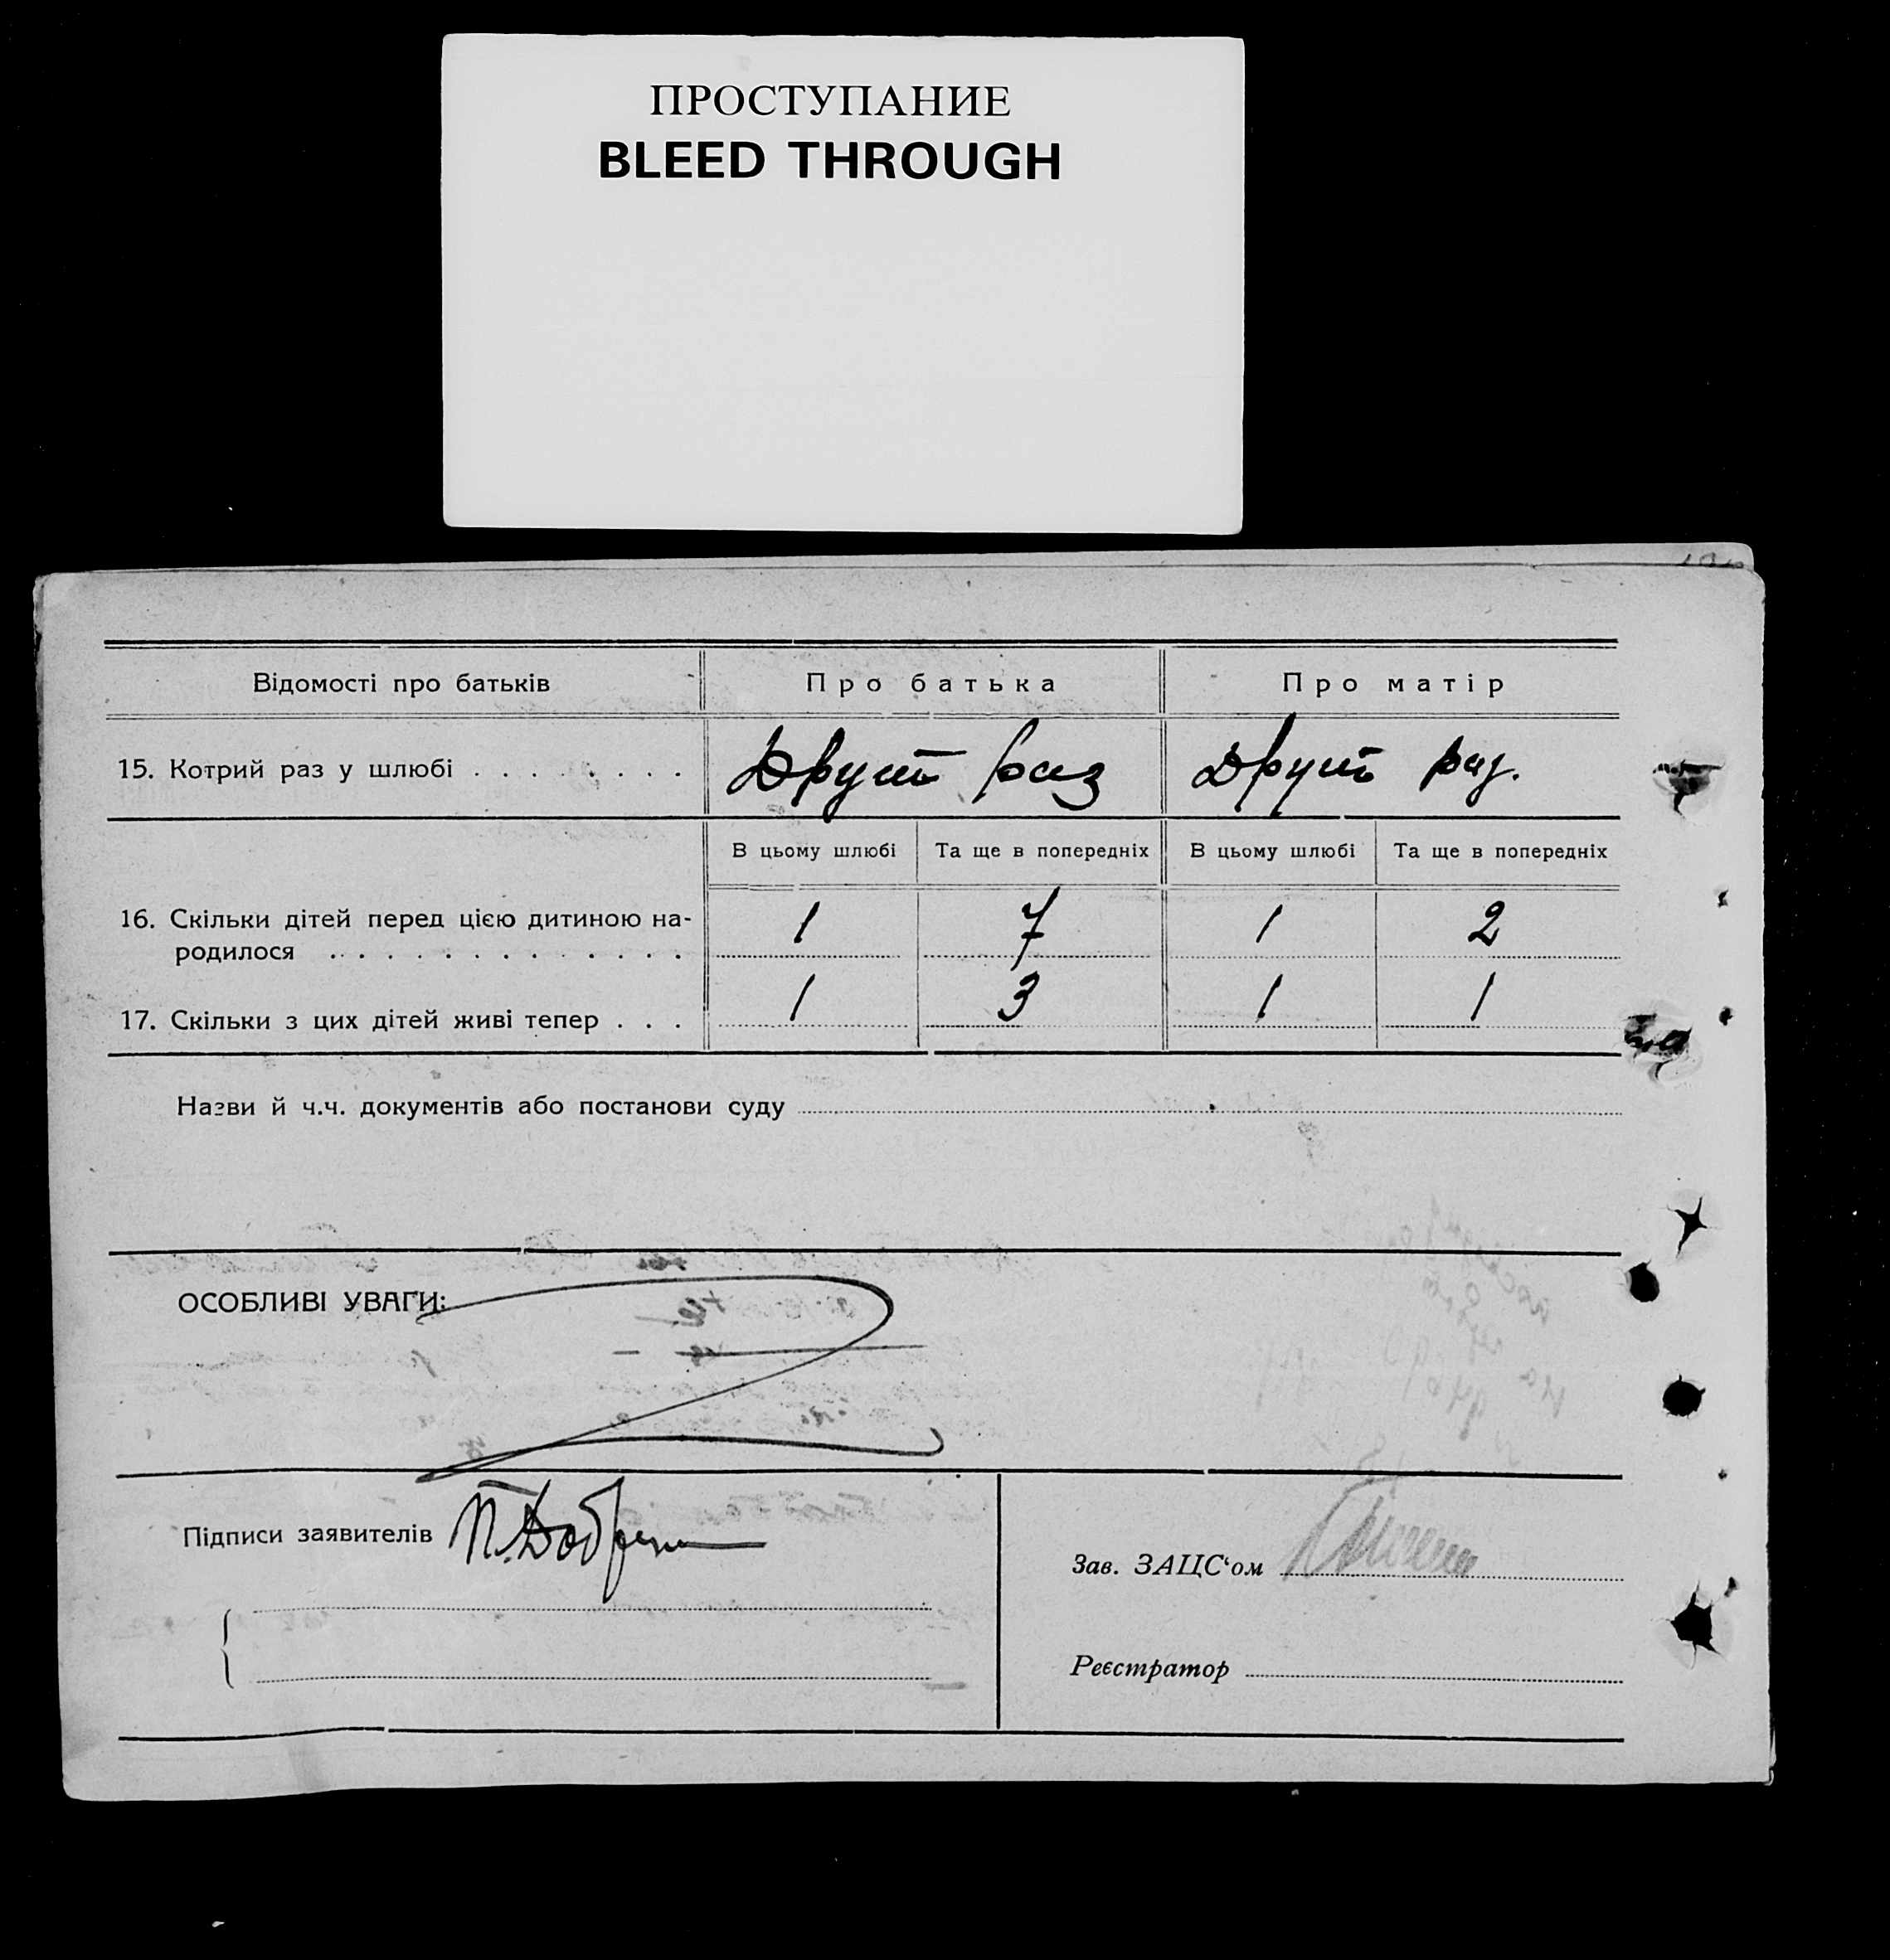 ПРОСТУПАНИЕ
BLEED THROUGH
Відомості про батьків Про батька Про матір
15. Котрий раз у шлюбі . . . . . . . . Другий раз Другий раз.
В цьому шлюбі Та ще в попередніх В цьому шлюбі Та ще в попередніх
16. Скільки дітей перед цією дитиною на-
родилося . . . . . . . . . . . . . 1 7 1 2
17. Скільки з цих дітей живі тепер . . . 1 3 1 1
Назви й ч.ч. документів або постанови суду
ОСОБЛИВІ УВАГИ:
Підписи заявителів
Зав. ЗАЦС‘ом
Реєстратор